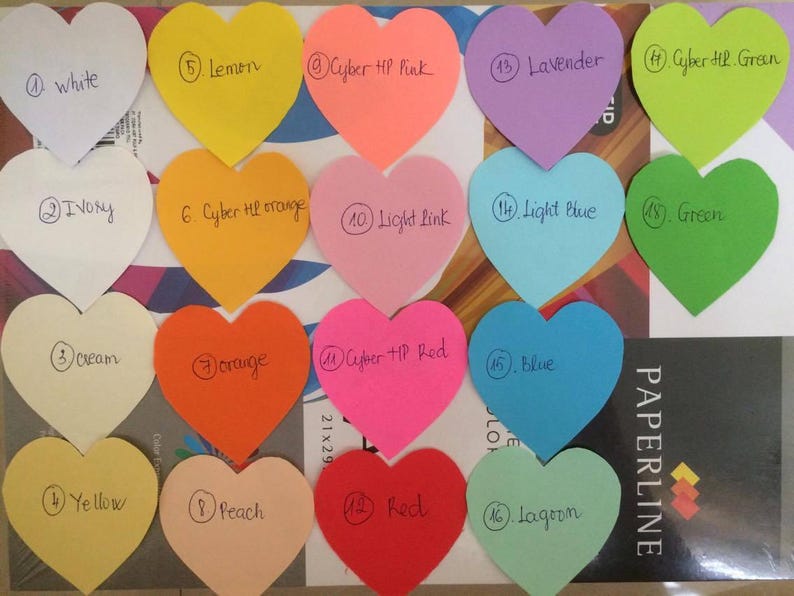 1. White
2 Ivory
3. cream
4 Yellow
5. Lemon
6. Cyber HP orange
7 orange
8. Peach
9 Cyber HP Pink
10. Light Pink
11 Cyber HP Red
12 Red
13 Lavender
14. Light Blue
15. Blue
16. Lagoon
17. Cyber HP. Green
18. Green
PAPERLINE
21x29.